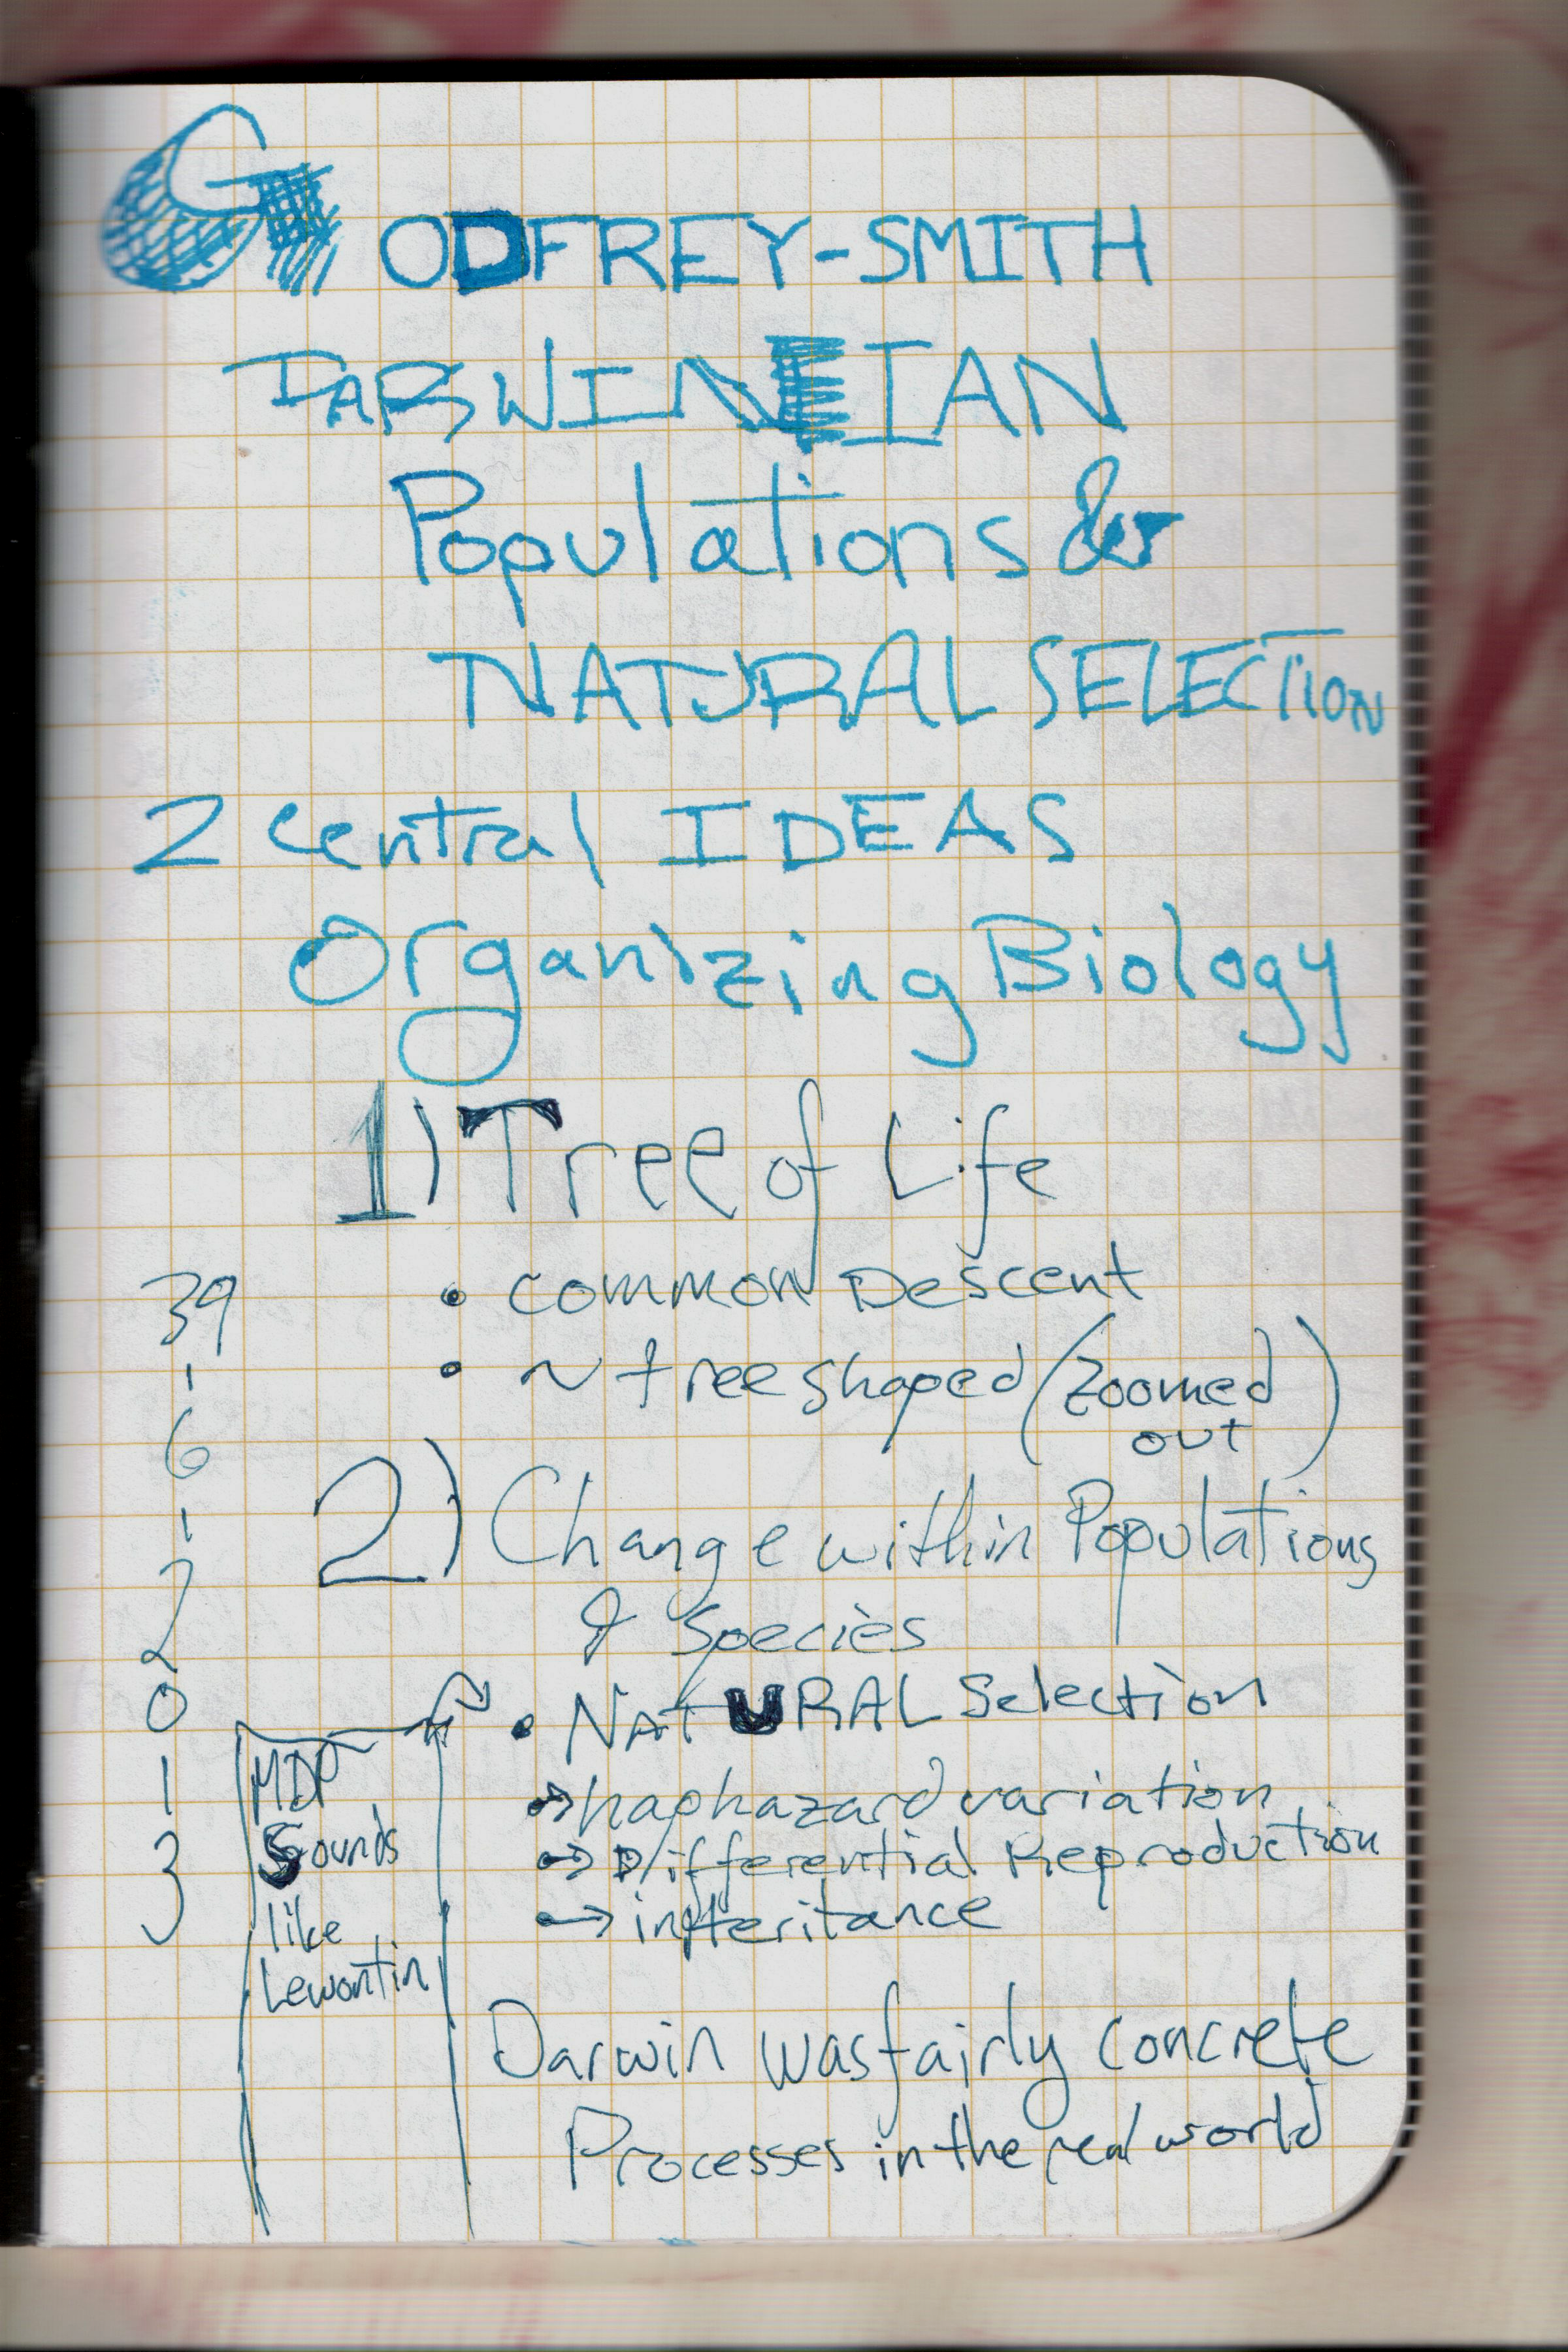 GODFREY-SMITH
DARWINIAN
Populations &
NATURAL SELECTION
2 central IDEAS
Organizing Biology
1) Tree of Life
• common Descent
• ~ tree shaped (zoomed
out)
2) Change within Populations
& Species
• NATURAL Selection
→ haphazard variation
→ Differential Reproduction
→ inheritance
Darwin was fairly concrete
Processes in the real world
39
-
6
-
2
0
1
3
MDP
Sounds
like
Lewontin